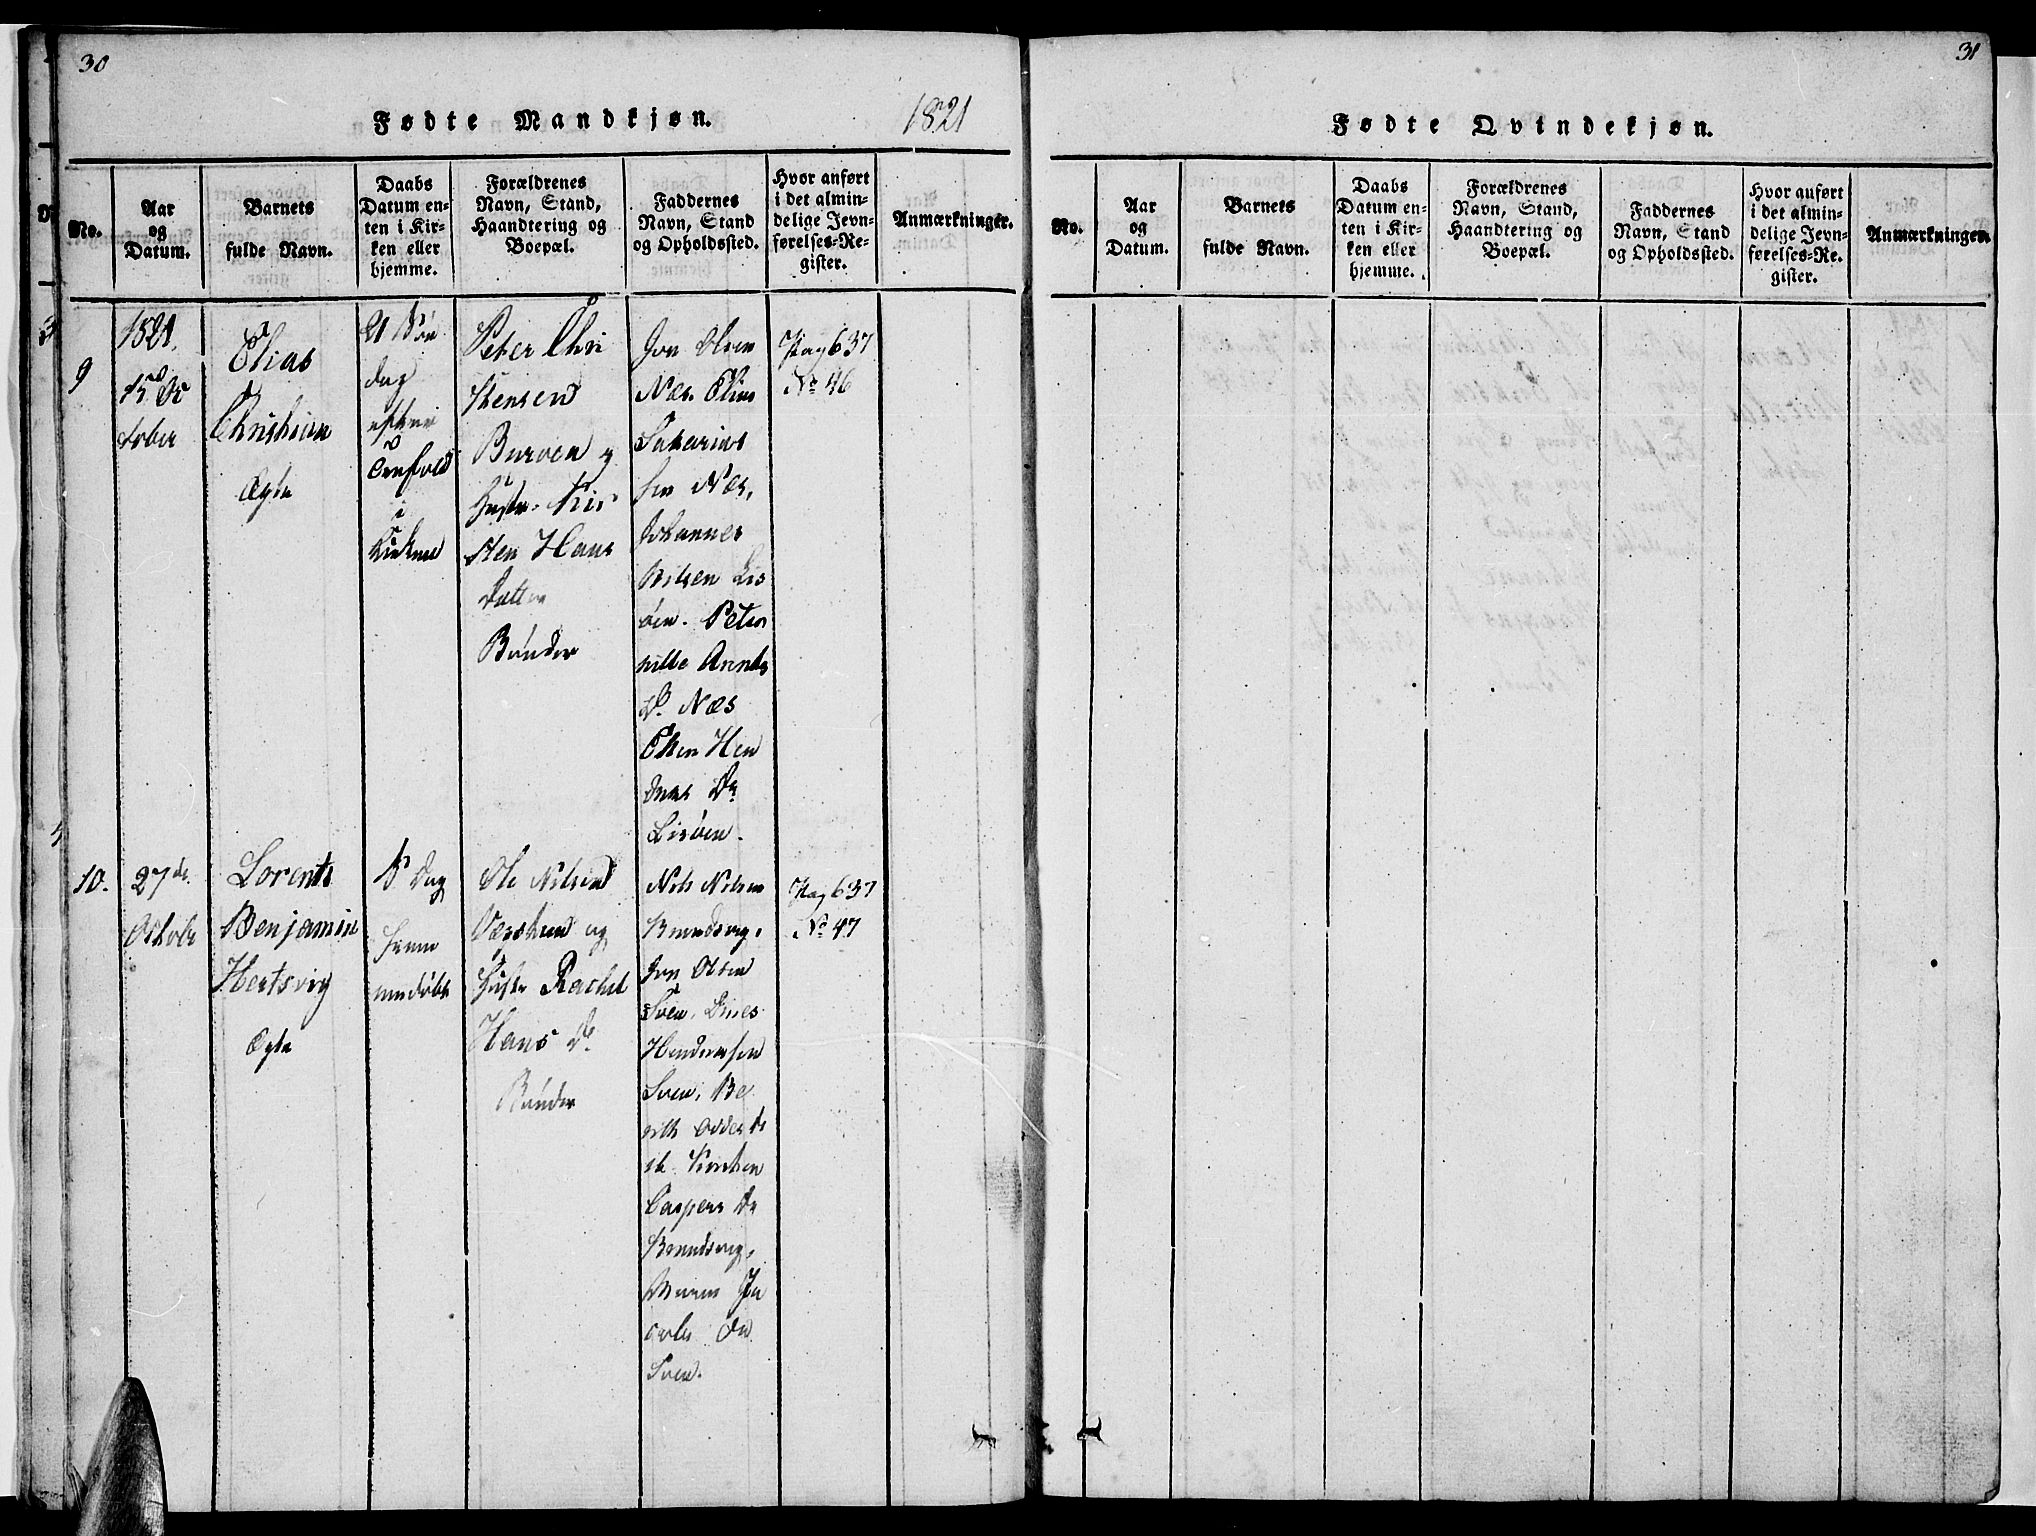 30
Fødte Mandkjøn.
1821
No.
Aar
og
Datum.
Barnets
fulde Navn.
Daabs
Datum en-
ten i Kir-
ken eller
hjemme.
Forældrenes
Navn, Stand,
Haandtering og
Boepæl.
Faddernes
Navn, Stand
og Opholdssted.
Hvor anført
i det almin-
delige Jevn-
førelses-Re-
gister.
Anmærkninger.
9
1821.
tober
Elias
Christian
Ægte
21 Søn
dag
efter
i
Kirken
Peter Chri
stensen
Burøen og
Hustr. Kir
sten Hans
Datter
Bønder
Jon Olsen
Næs. Elias
Sakarias
sen Næs,
Johannes
Nilsen Lis
øen. Peter
nille Arents
D. Næs
Ellen Hen
driks Dr
Lisøen.
Pag 637
No 46
10.
27de
October
Lorents
Benjamin
Hertsvig
Ægte
S Dag
hjemme
døbt
Ole Nilsen
og
Hustr Rachel
Hans Dr
Bønder
Nels Nelsen
Brundsvig.
Jon Olsen
Sven. Dines
Hendriksen
Sven. Be
rith
Kirsten
Caspers Dr
Brundsvig.
Maren Ja
cobs Dr
Sven.
Pag 637
No 47
31
Fødte Qvindekjøn.
No.
Aar
og
Datum.
Barnets
fulde Navn.
Daabs
Datum en-
ten i Kir-
ken eller
hjemme.
Forældrenes
Navn, Stand,
Haandtering og
Boepæl.
Faddernes
Navn, Stand
og Opholdssted.
Hvor anført
i det almin-
delige Jevn-
førelses-Re-
gister.
Anmærkninger.